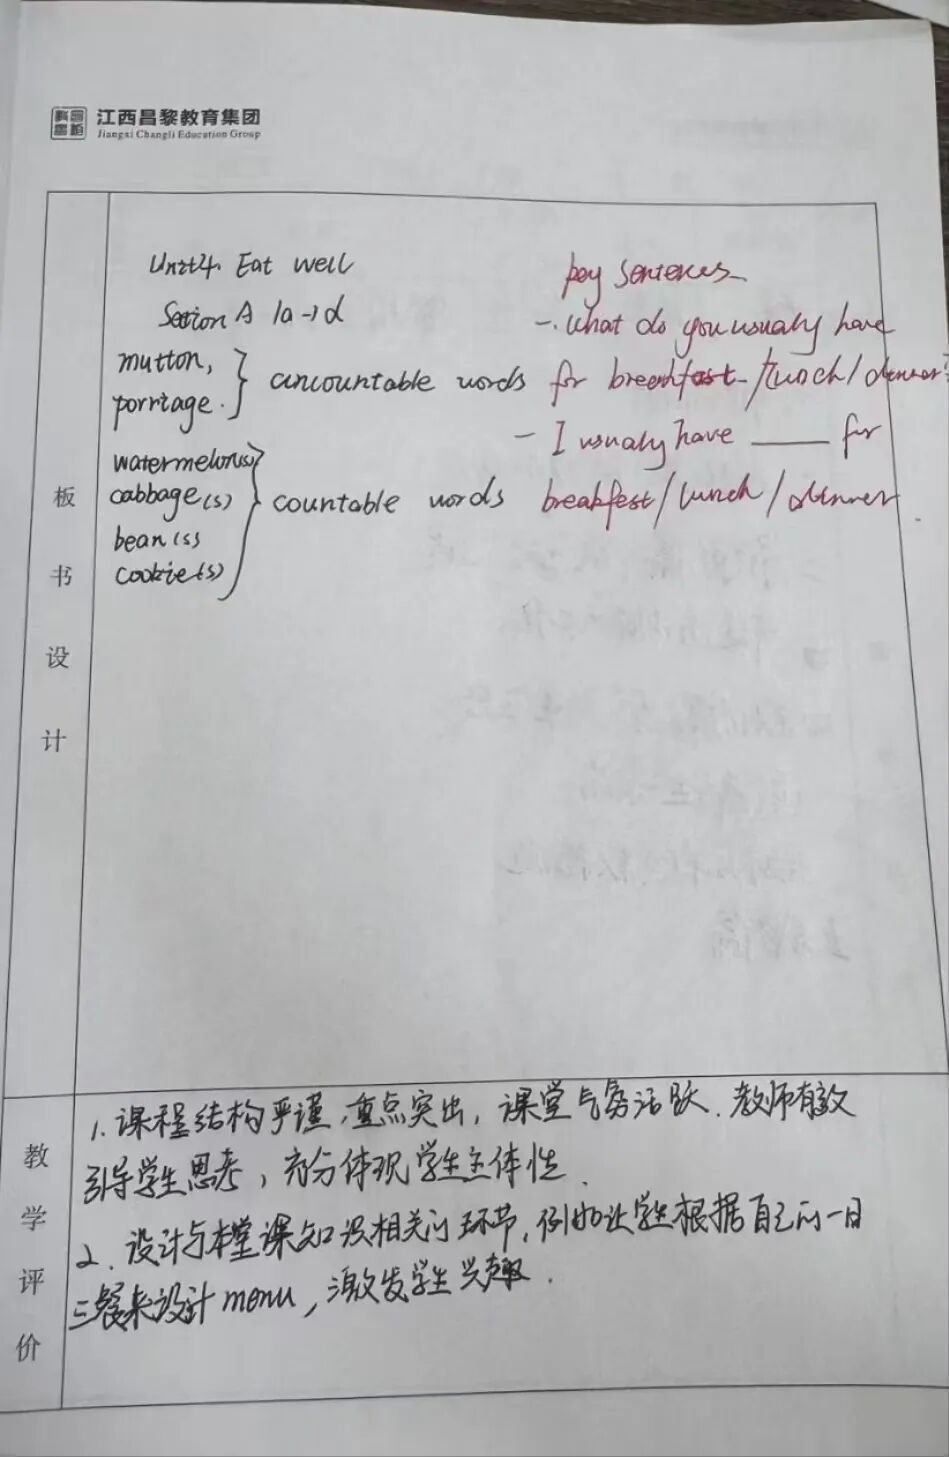 江西昌黎教育集团
Jiangxi Changli Education Group
板书设计
Unit4. Eat well
Section A 1a-1d
mutton,
porriage.
uncountable words
watermelon(s)
cabbage(s)
bean(s)
cookie(s)
countable words
key sentences
-. What do you usually have
for breakfast/lunch/dinner?
- I usually have ____ for
breakfest/lunch/dinner
教学评价
1. 课程结构严谨,重点突出,课堂气氛活跃.教师有效
引导学生思考,充分体现学生主体性.
2. 设计与本堂课知识相关的环节,例如让学生根据自己的一日
三餐来设计menu,激发学生兴趣.